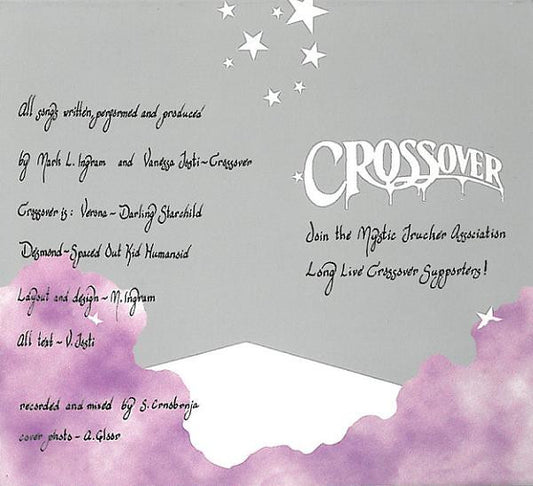 All songs written, performed and produced
by Mark L. Ingram and Vanessa Tosti ~ Crossover
Crossover is: Verona ~ Darling Starchild
Desmond ~ Spaced Out Kid Humanoid
Layout and design ~ M. Ingram
All text ~ V. Tosti
recorded and mixed by S. Crnobrnja
cover photo ~ A. Gloor
CROSSOVER
Join the Mystic Trucker Association
Long Live Crossover Supporters!